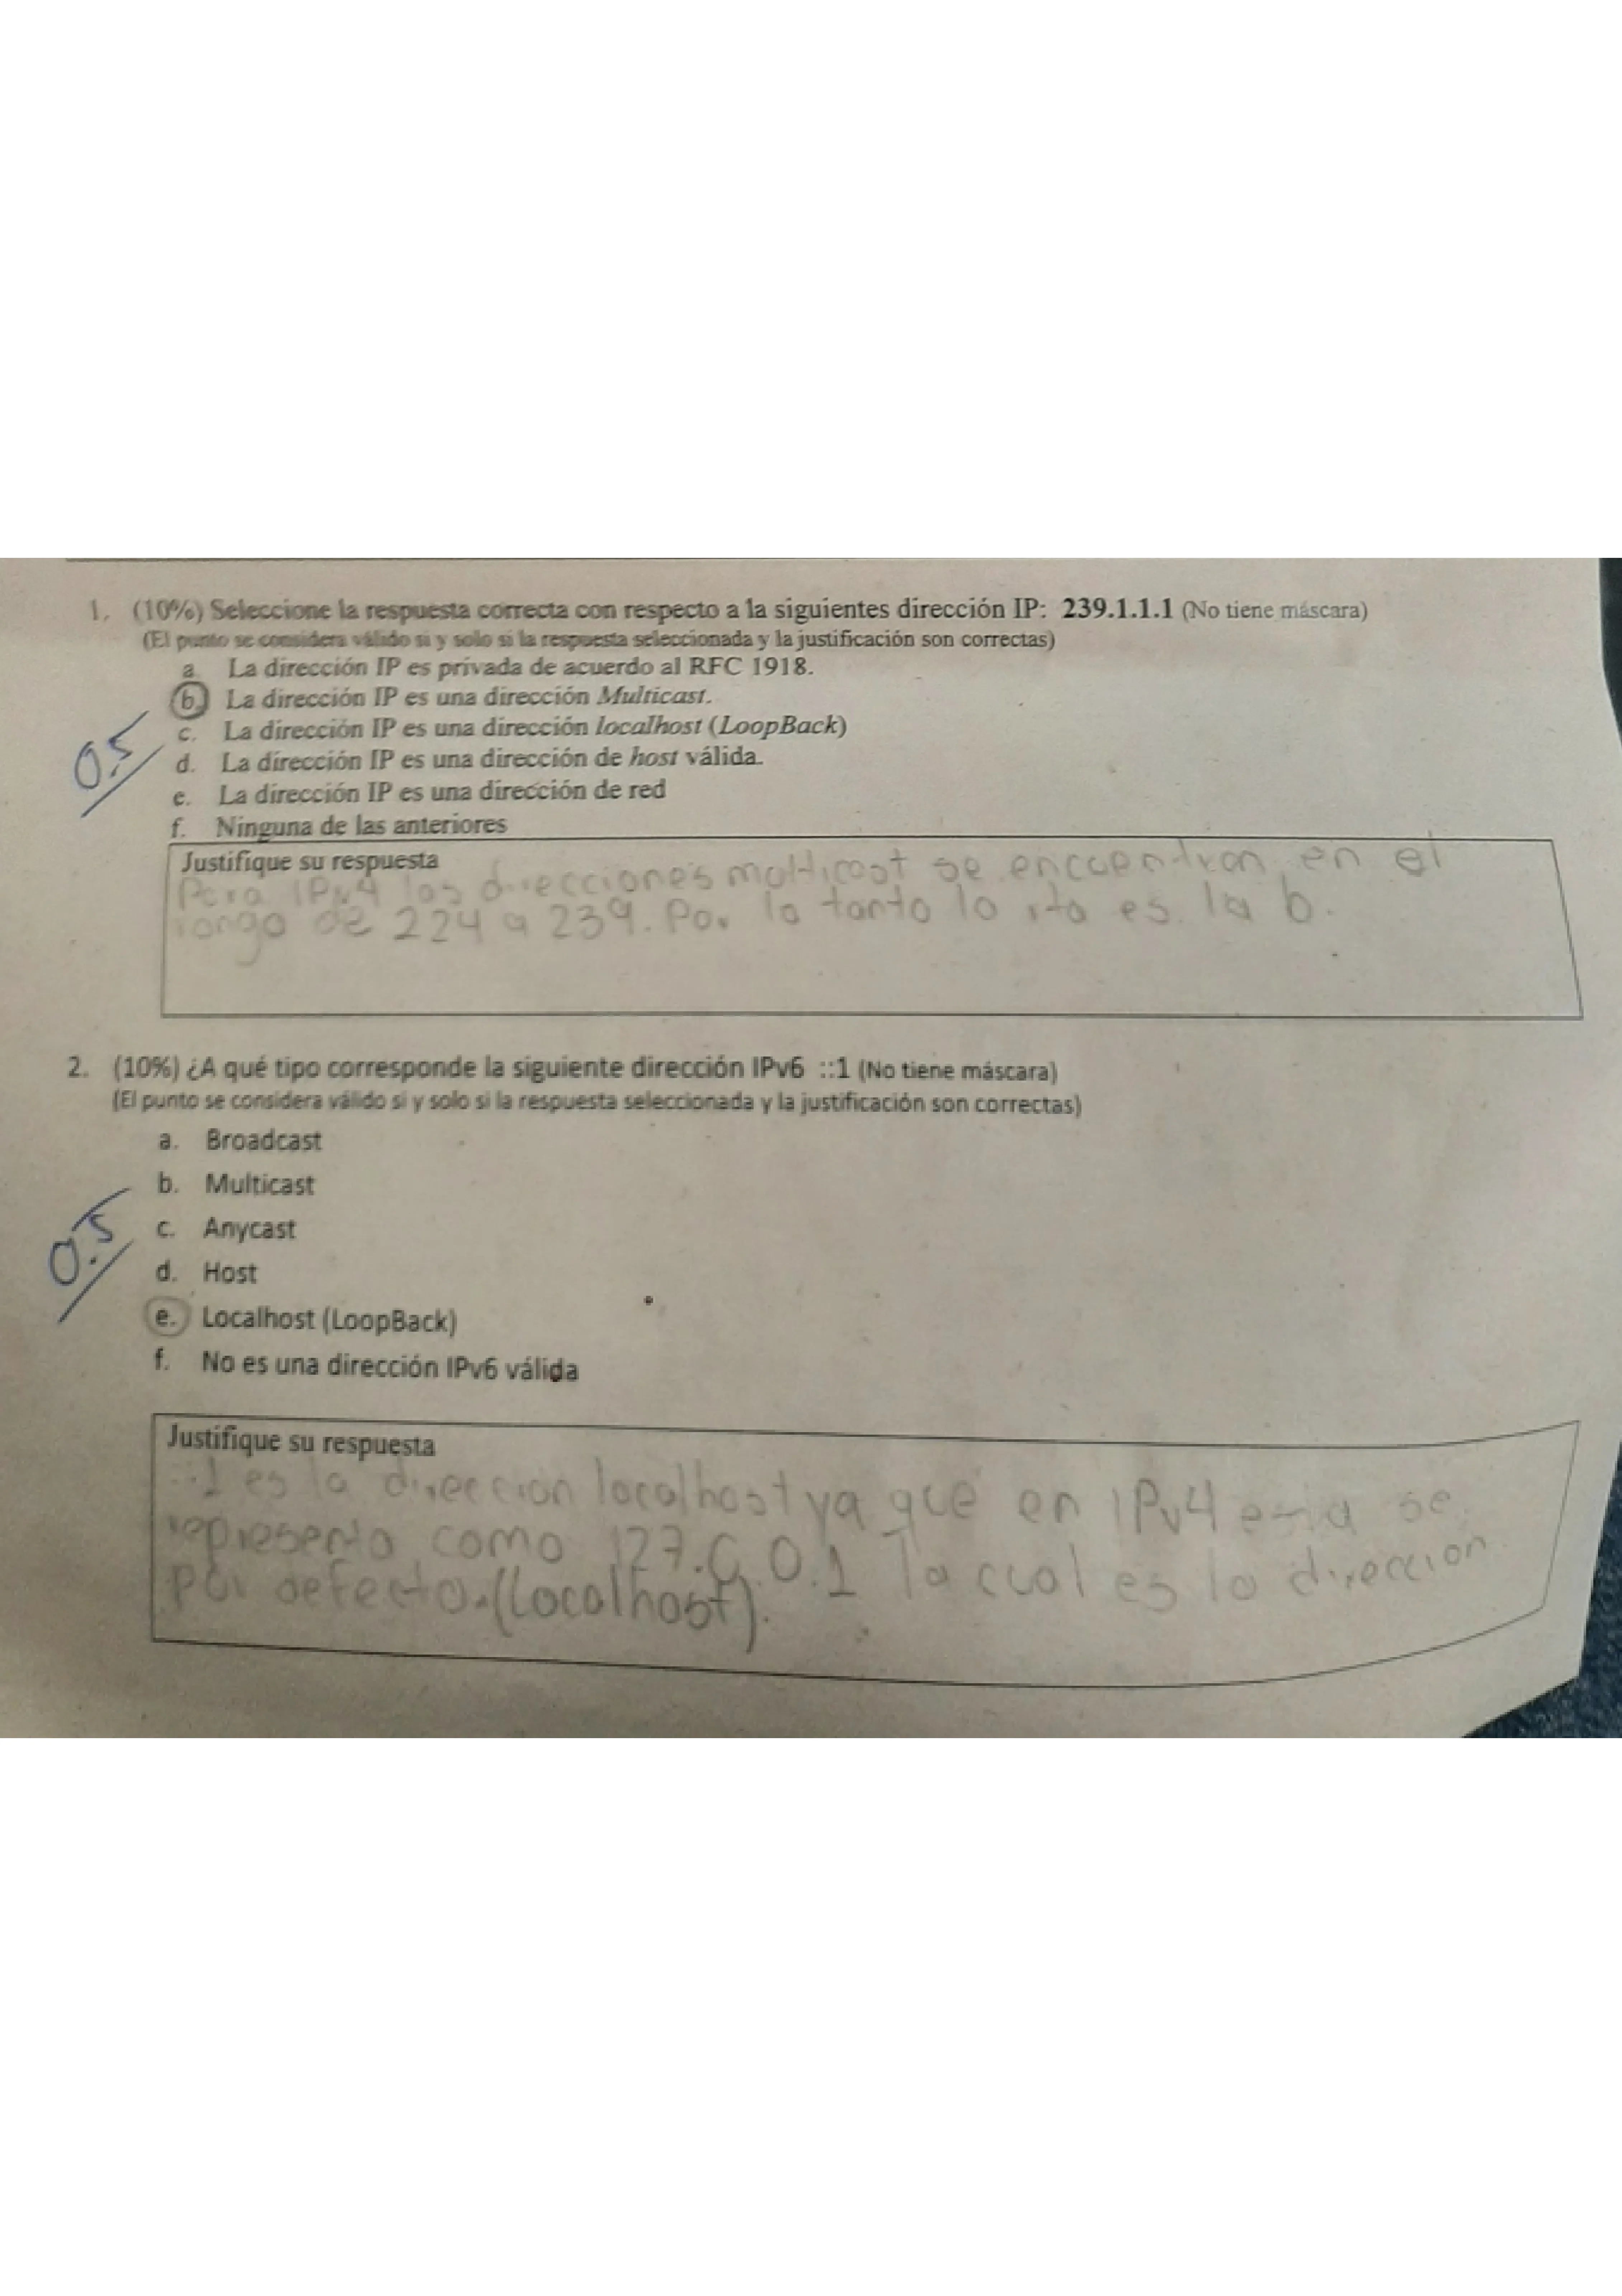 1. (10%) Seleccione la respuesta correcta con respecto a la siguientes dirección IP: 239.1.1.1 (No tiene máscara)
(El punto se considera válido si y solo si la respuesta seleccionada y la justificación son correctas)
a. La dirección IP es privada de acuerdo al RFC 1918.
b. La dirección IP es una dirección Multicast.
c. La dirección IP es una dirección localhost (LoopBack)
0.5
d. La dirección IP es una dirección de host válida.
e. La dirección IP es una dirección de red
f. Ninguna de las anteriores
Justifique su respuesta
Para IPv4 las direcciones multicast se encuentran en el
rango de 224 a 239. Por lo tanto la rta es la b.
2. (10%) ¿A qué tipo corresponde la siguiente dirección IPv6 ::1 (No tiene máscara)
(El punto se considera válido si y solo si la respuesta seleccionada y la justificación son correctas)
a. Broadcast
b. Multicast
c. Anycast
0.5
d. Host
e. Localhost (LoopBack)
f. No es una dirección IPv6 válida
Justifique su respuesta
::1 es la direccion localhost ya que en IPv4 esta se
representa como 127.0.0.1 la cual es la direccion
por defecto.(Localhost).